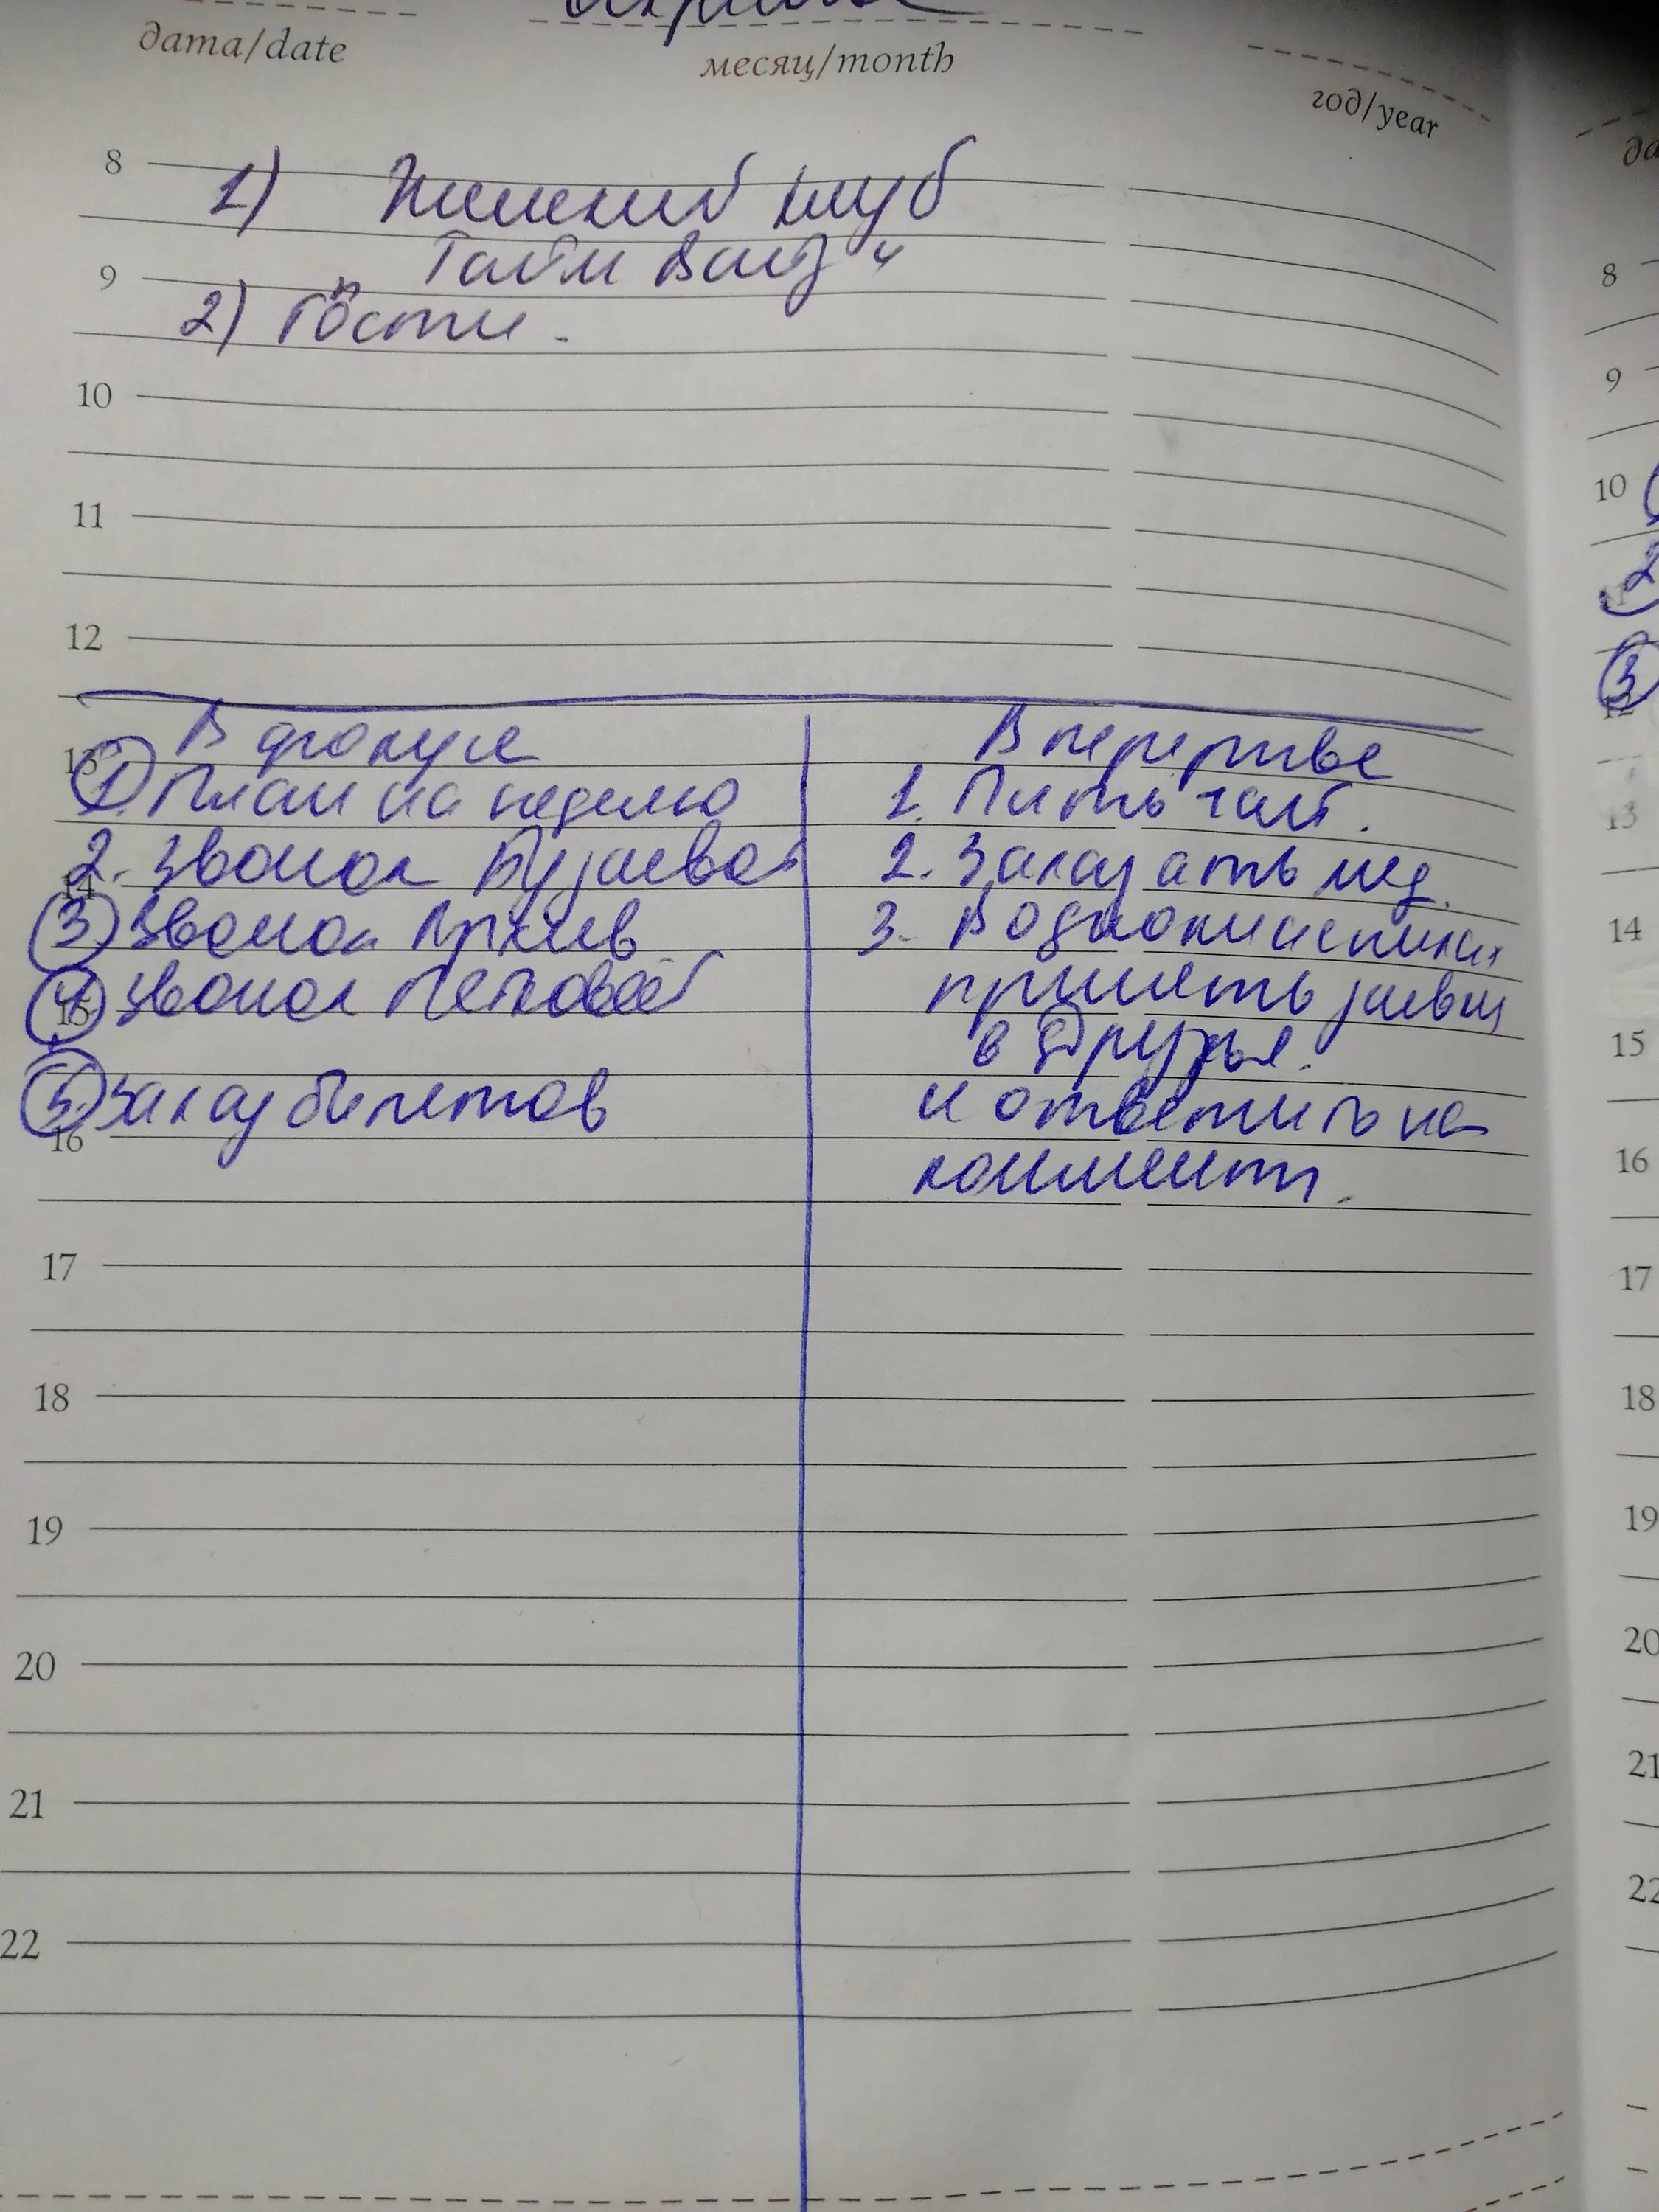 дата/date
месяц/month
год/year
8
1) Женский клуб
"Тайм Вайз"
9
2) Гости.
10
11
12
В фокусе
В перерыве
13
1. План на неделю
1. Пить чай.
2. Звонок
2. Заказать мед.
14
3. Звонок Архив
3. В одноклассниках
4. Звонок
принять заявки
15
в Друзья.
5. Заказ билетов
и ответить на
16
коммент.
17
18
19
20
21
22
8
9
10
2
3
12
13
14
15
16
17
18
19
20
21
22